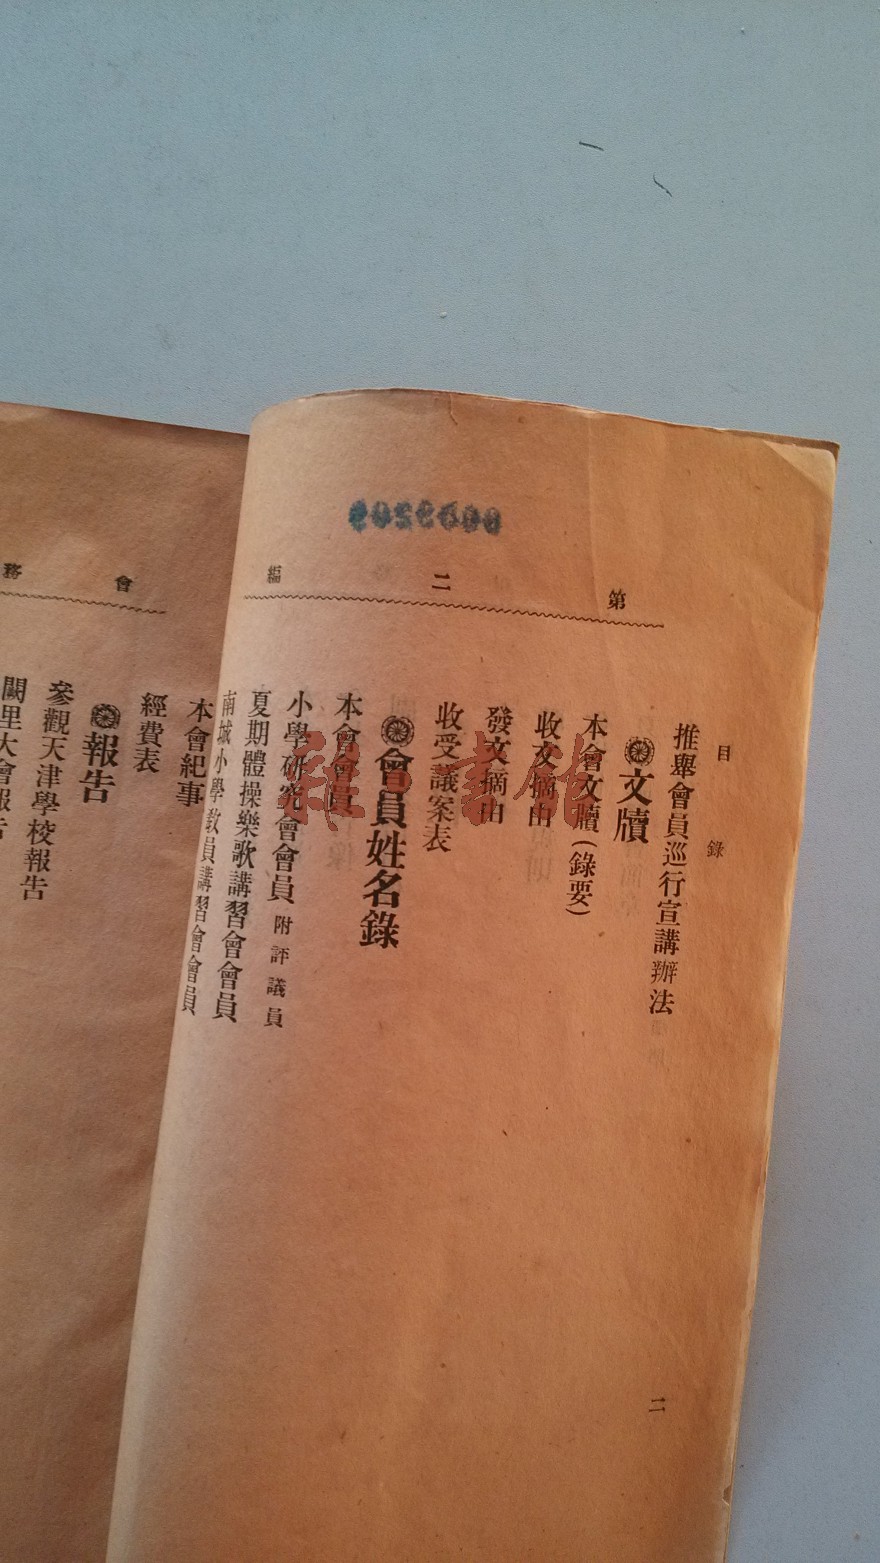 0053600
第二編
目錄
推舉會員巡行宣講辦法
文牘
本會文牘(錄要)
收文摘由
發文摘由
收受議案表
會員姓名錄
本會會員
小學研究會會員 附評議員
夏期體操樂歌講習會會員
南城小學教員講習會會員
二
會務
本會紀事
經費表
報告
參觀天津學校報告
闕里大會報告